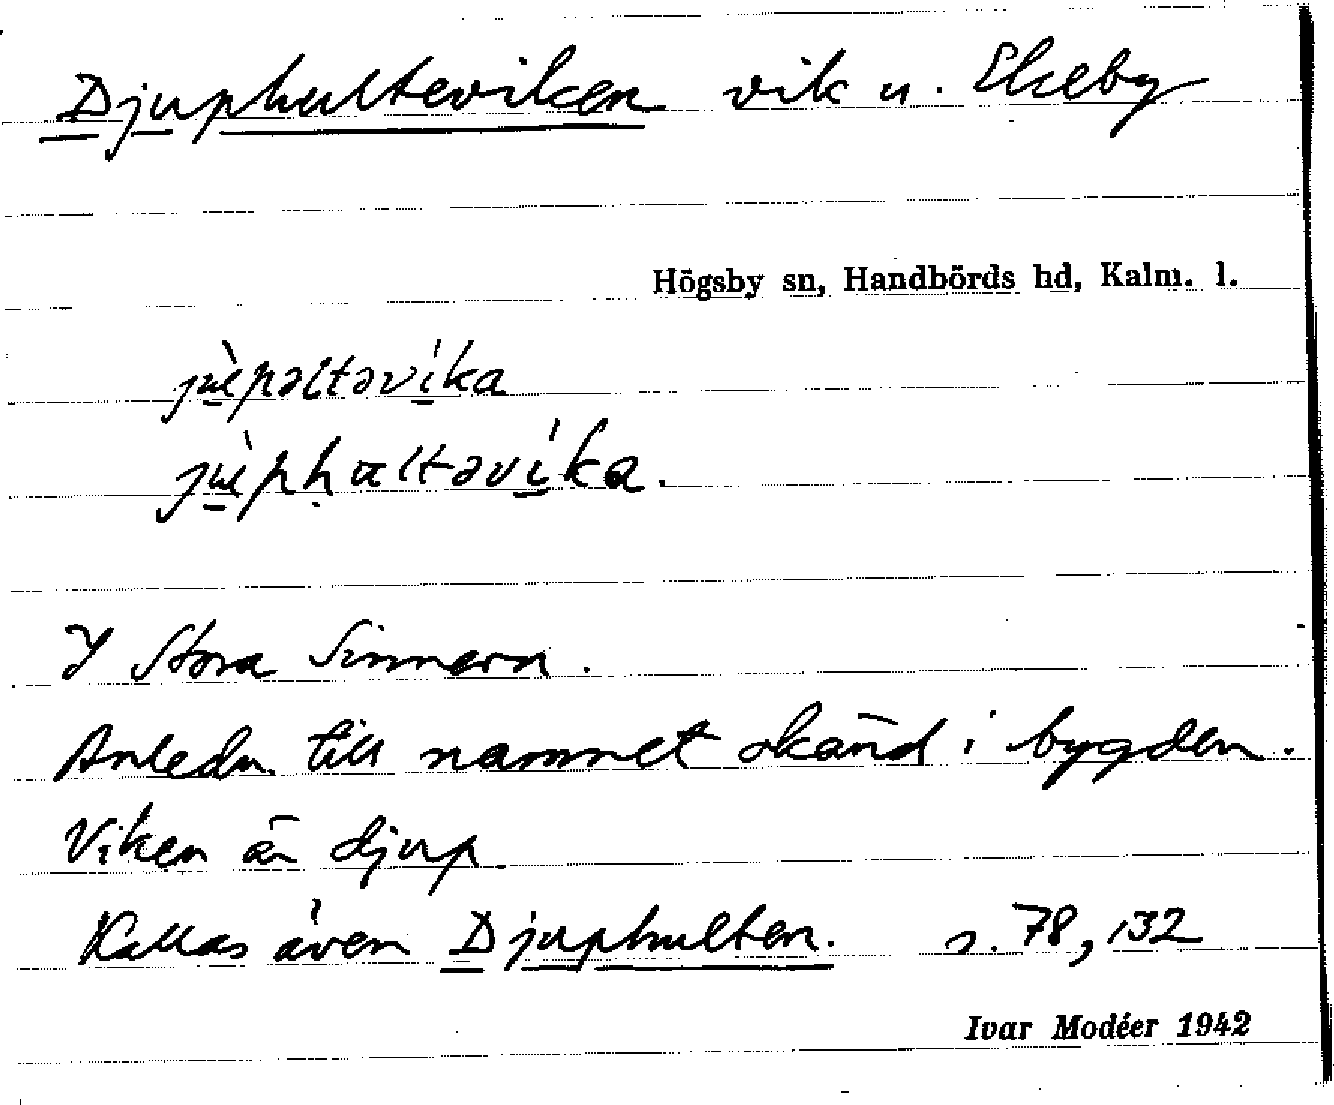 Djuphulteviken vik u. Ekeby
Högsby sn, Handbörds hd, Kalm. l.
I Stora Sinnern.
Anledn. till namnet okänd i bygden.
Viken är djup
Kallas även Djuphulten. s. 78, 132
Ivar Modéer 1942